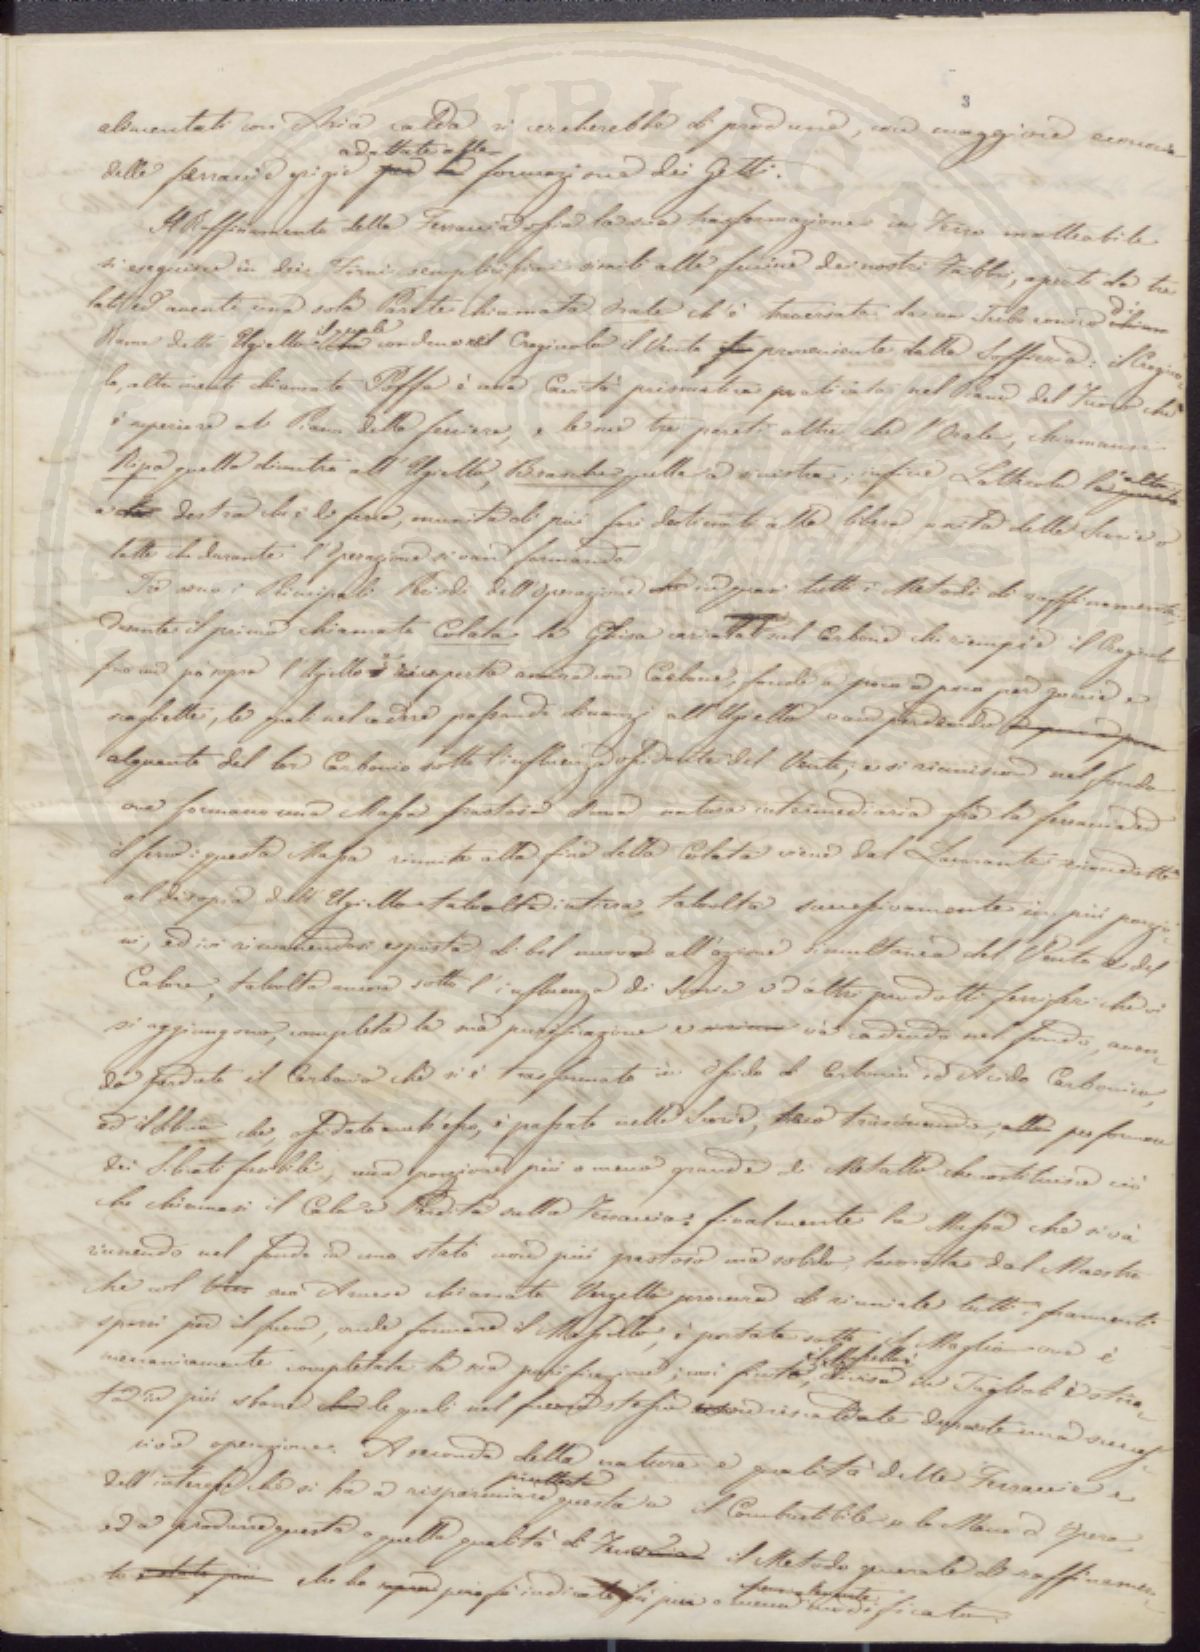 3
alimentati con Aria calda si cercherebbe di produrre, con maggiore economia
adattate alla
delle ferraccie grigie per la formazione dei Getti.
Il Raffinamento della Ferraccia ossia la sua trasformazione in Ferro malleabile
si eseguisce in dei Forni semplicissimi simili alle fucine dei nostri Fabbri, aperti da tre
lati ed aventi una sola Parete chiamata Orale ch'è traversata da un Tubo conico di
Rame detto Ugiello il quale conduce nel Crogiuolo il Vento proveniente dalla Soffieria: il Crogiuo-
lo, altrimenti chiamato Poffa è una Cavità prismatica praticata nel Piano del Fuoco che
è superiore al Piano della ferriera, e le sue tre pareti altre che l'Orale, chiamansi
Ripa quella dicontro all'Ugiello, Brasche quella a sinistra; infine Latterola l'altra
a destra che è di ferro, munita di più fori destinati alla libera uscita delle Scorie o
latte che durante l'Operazione si van formando.
Tre sono i Principali Periodi dell'Operazione in quasi tutti i Metodi di raffinamento;
durante il primo chiamato Colata la Ghisa caricata sul Carbone che riempie il Crogiuolo
fino un pò sopra l'Ugiello e ricoperta ancora con Carbone, fonde a poco a poco per goccie e
, le quali nel cadere passando dinanzi all'Ugiello van perdendo a poco a poco
alquanto del lor Carbonio sotto l'influenza ossidante del Vento, e si riuniscon nel fondo
ove formano una Massa pastosa d'una natura intermediaria fra la ferraccia ed
il ferro: questa Massa riunita alla fine della Colata viene dal Lavorante ricondotta
al disopra dell'Ugiello talvolta intiera, talvolta successivamente in più porzio-
ni, ed ivi rimanendosi esposta di bel nuovo all'azione simultanea del Vento e del
Calore, talvolta ancora sotto l'influenza di Scorie e d'altri prodotti ferriferi che vi
si aggiungono, completa la sua purificazione e và cadendo nel fondo, aven-
do perduto il Carbonio che si è trasformato in Ossido di Carbonio ed Acido Carbonico,
ed il che, ossidato anch'esso, è passato nelle Scorie, seco trascinando, per formare
dei Silicati fusibili, una porzione più o meno grande di Metallo che costituisce ciò
che chiamasi il Calo o Perdita sulla Ferraccia: finalmente la Massa che si và
riunendo nel fondo in uno stato non più pastoso ma solido, lavorata dal Maestro
che col suo Arnese chiamato Verzella procura di riunirle tutti i frammenti
sparsi per il fuoco, onde formare il Massello, è portata sotto il Maglio ove è
meccanicamente completata la sua purificazione; così finita,
il Massello
divisa in Taglioli è stira-
ta in più sbarre le quali nel fuoco stesso riscaldate durante una succes-
siva operazione. A seconda della natura e qualità delle Ferraccie e
dell'interesse che si ha a risparmiare piuttosto questa o il Combustibile o la Mano d'Opera
ed a produrre questa o quella qualità di Ferro il Metodo generale di raffinamen-
to che ho indicato fu più o meno modificato.